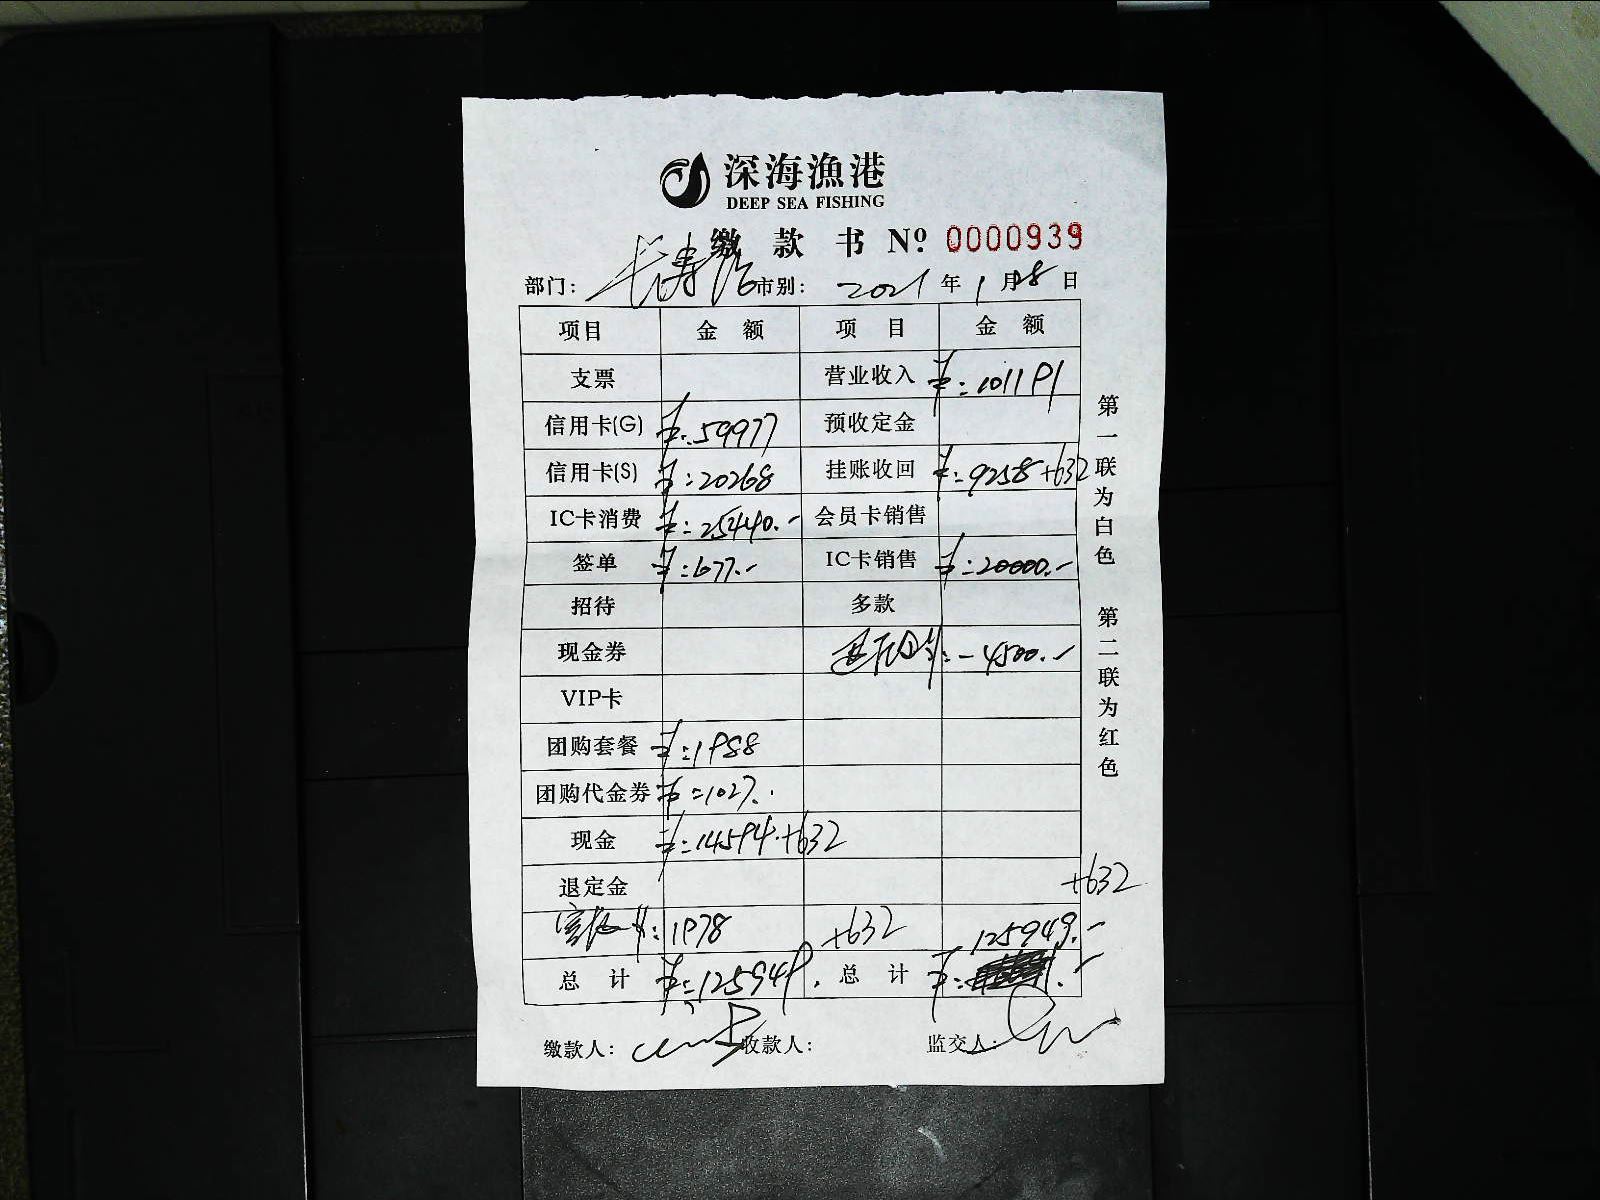 深海漁港
DEEP SEA FISHING
缴款书 Nº 0000939
部门： 长寿路 市别： 2021年1月28日
项目 金额 项目 金额
支票 营业收入 ￥:101191
信用卡(G) ￥:59977 预收定金
信用卡(S) ￥:20268 挂账收回 ￥:9258+632
IC卡消费 ￥:25440.- 会员卡销售
签单 ￥:677.- IC卡销售 ￥:20000.-
招待 多款
现金券 -4500.-
VIP卡
团购套餐 ￥:1988
团购代金券 ￥:1027.
现金 ￥:14594.+632
退定金 +632
1978 +632 125949.-
总计 ￥:125949. 总计 ￥:
缴款人： 收款人： 监交人：
第一联为白色
第二联为红色